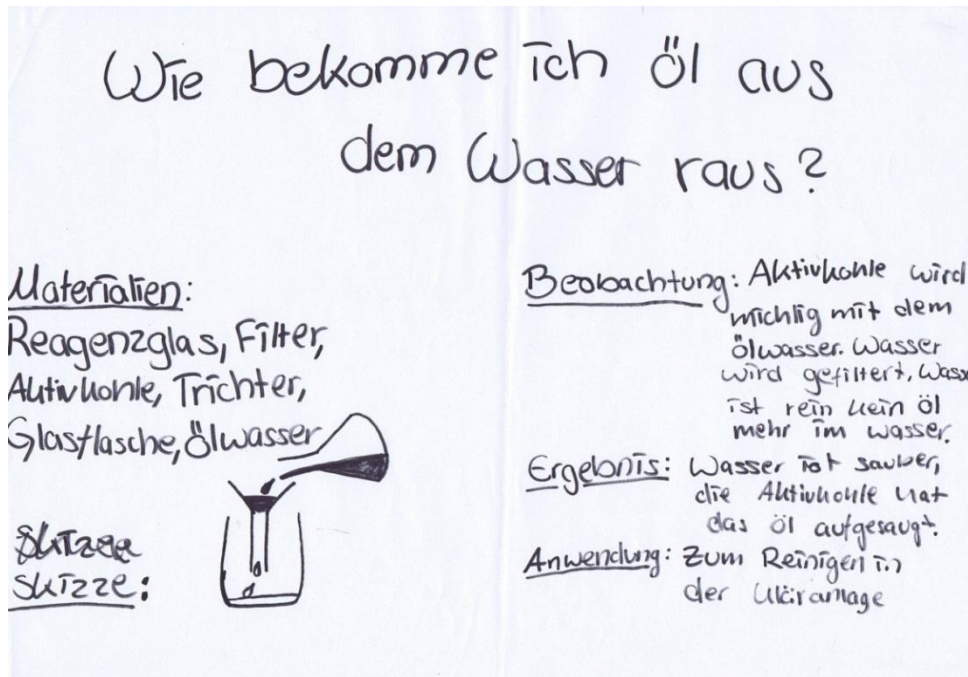 Wie bekomme ich öl aus
dem Wasser raus?
Materialien:
Reagenzglas, Filter,
Aktivkohle, Trichter,
Glasflasche, ölwasser
Skizze:
Beobachtung: Aktivkohle wird
michlig mit dem
ölwasser. Wasser
wird gefiltert. Wasse
ist rein kein öl
mehr im wasser.
Ergebnis: Wasser ist sauber,
die Aktivkohle hat
das öl aufgesaugt.
Anwendung: Zum Reinigen in
der Kläranlage